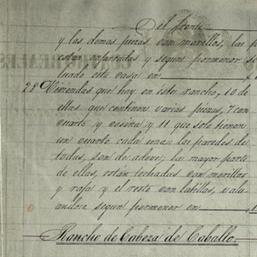 del frente
y las demas piezas con morillos, las p
estan enjarradas y segun pormenor so
luado esta casa en
28 Viviendas que hay en este rancho, 10 de
ellas que contienen varias piezas, 7 con
cuarto y cocina y 11 que solo tienen
un cuarto cada una: las paredes de
todas, son de adove; la mayor parte
de ellas, estan techadas con morillos
y rafa y el resto con tablitas, valu
andose segun pormenor en
Rancho de Cabeza de Caballo.